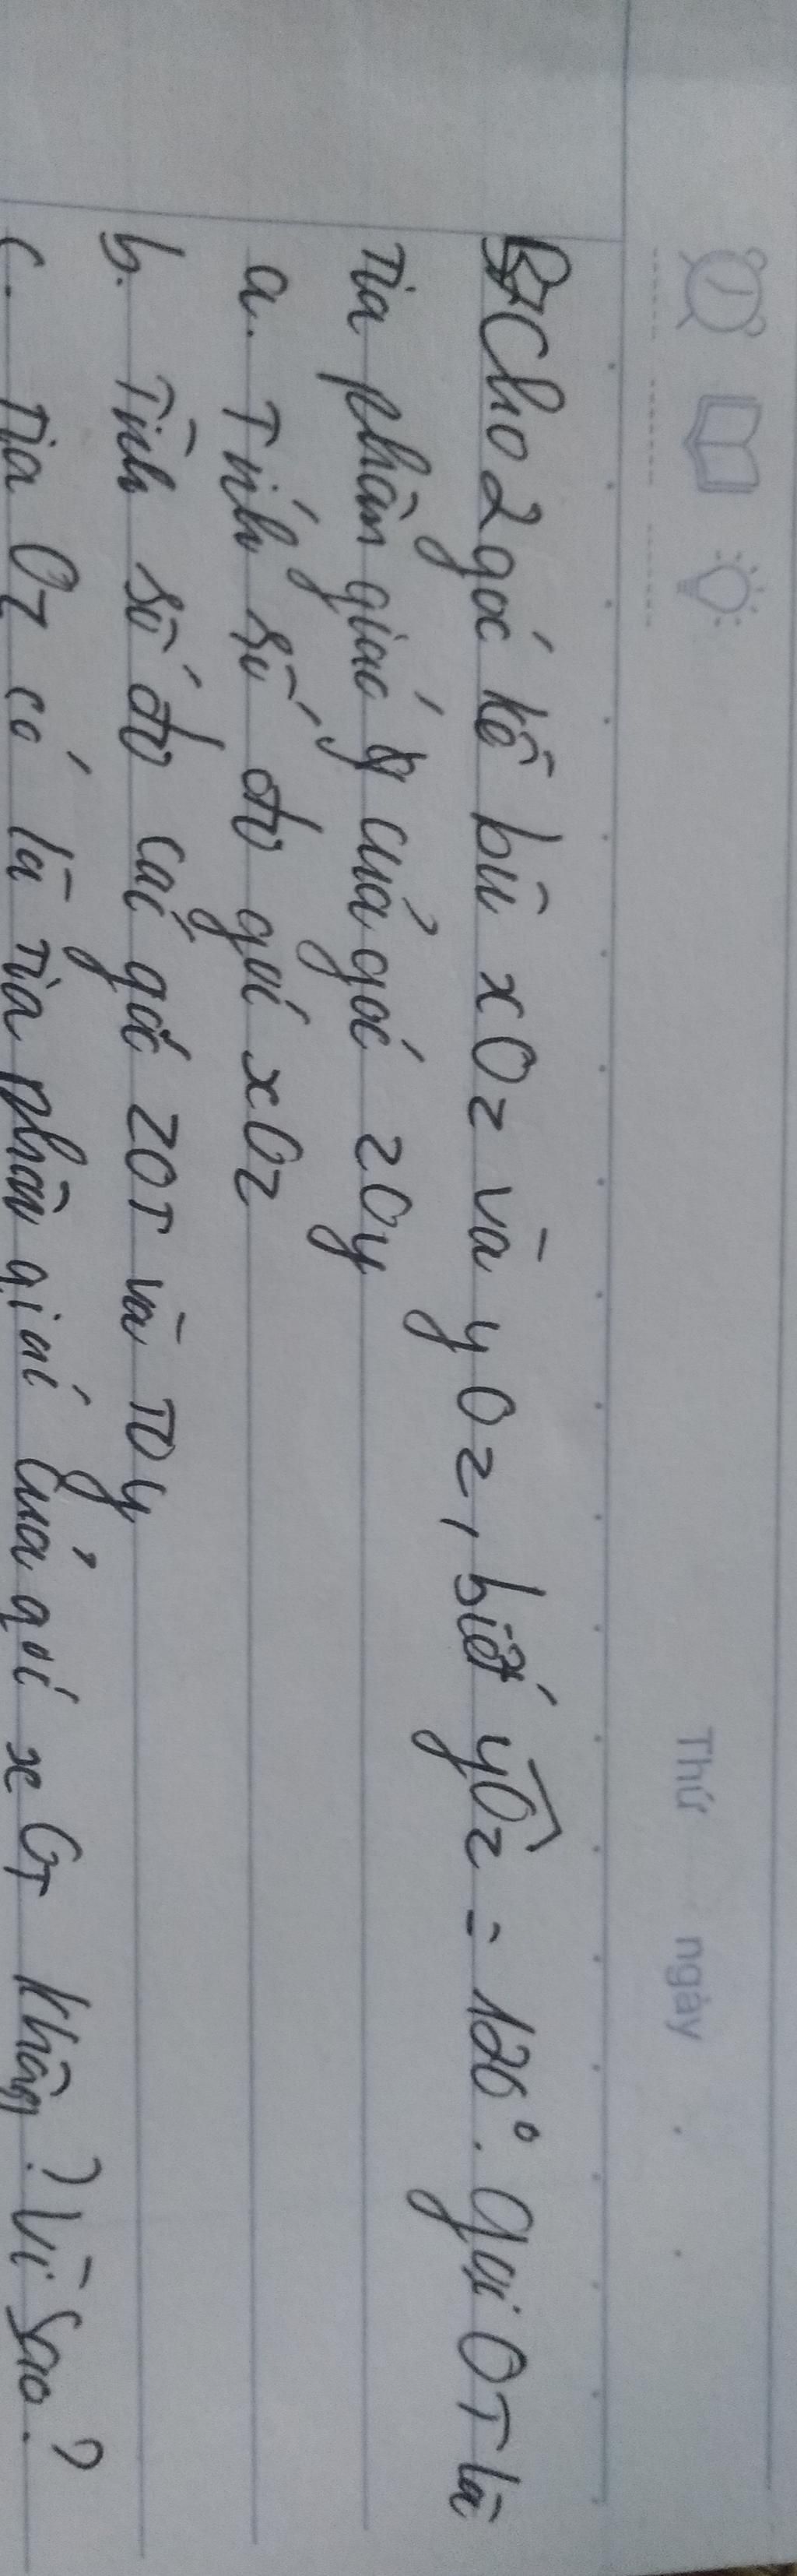 Thứ ngày
Cho 2 góc kề bù xOz và yOz, biết yOz = 120°. Gọi OT là
Tia phân giác của góc zOy
a. Tính số đo góc xOz
b. Tính số đo các góc zOT và TOy
c. Tia Oz có là tia phân giác của góc xOT không? Vì sao?